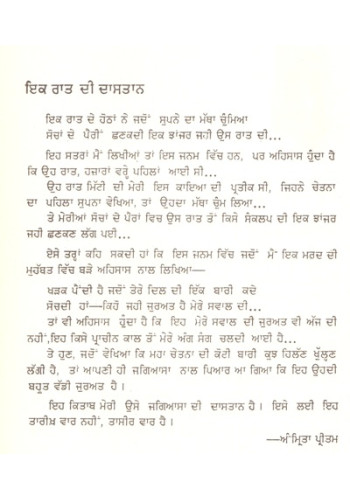 ਇਕ ਰਾਤ ਦੀ ਦਾਸਤਾਨ
ਇਕ ਰਾਤ ਦੇ ਹੋਠਾਂ ਨੇ ਜਦੋਂ ਸੁਪਨੇ ਦਾ ਮੱਥਾ ਚੁੰਮਿਆ
ਸੋਚਾਂ ਦੇ ਪੈਰੀਂ ਛਣਕਦੀ ਇਕ ਝਾਂਜਰ ਜਹੀ ਉਸ ਰਾਤ ਦੀ...
ਇਹ ਸਤਰਾਂ ਮੈਂ ਲਿਖੀਆਂ ਤਾਂ ਇਸ ਜਨਮ ਵਿੱਚ ਹਨ, ਪਰ ਅਹਿਸਾਸ ਹੁੰਦਾ ਹੈ
ਕਿ ਉਹ ਰਾਤ, ਹਜ਼ਾਰਾਂ ਵਰ੍ਹੇ ਪਹਿਲਾਂ ਆਈ ਸੀ...
ਉਹ ਰਾਤ ਮਿੱਟੀ ਦੀ ਮੇਰੀ ਇਸ ਕਾਇਆ ਦੀ ਪ੍ਰਤੀਕ ਸੀ, ਜਿਹਨੇ ਚੇਤਨਾ
ਦਾ ਪਹਿਲਾ ਸੁਪਨਾ ਵੇਖਿਆ, ਤਾਂ ਉਹਦਾ ਮੱਥਾ ਚੁੰਮ ਲਿਆ...
ਤੇ ਮੇਰੀਆਂ ਸੋਚਾਂ ਦੇ ਪੈਰਾਂ ਵਿਚ ਉਸ ਰਾਤ ਤੋਂ ਕਿਸੇ ਸੰਕਲਪ ਦੀ ਇਕ ਝਾਂਜਰ
ਜਹੀ ਛਣਕਣ ਲੱਗ ਪਈ...
ਏਸੇ ਤਰ੍ਹਾਂ ਕਹਿ ਸਕਦੀ ਹਾਂ ਕਿ ਇਸ ਜਨਮ ਵਿੱਚ ਜਦੋਂ ਮੈਂ ਇਕ ਮਰਦ ਦੀ
ਮੁਹੱਬਤ ਵਿੱਚ ਬੜੇ ਅਹਿਸਾਸ ਨਾਲ ਲਿਖਿਆ—
ਖੜਕ ਪੈਂਦੀ ਹੈ ਜਦੋਂ ਤੇਰੇ ਦਿਲ ਦੀ ਇੱਕ ਬਾਰੀ ਕਦੇ
ਸੋਚਦੀ ਹਾਂ—ਕਿਹੋ ਜਹੀ ਜੁਰਅਤ ਹੈ ਮੇਰੇ ਸਵਾਲ ਦੀ...
ਤਾਂ ਵੀ ਅਹਿਸਾਸ ਹੁੰਦਾ ਹੈ ਕਿ ਇਹ ਮੇਰੇ ਸਵਾਲ ਦੀ ਜੁਰਅਤ ਵੀ ਅੱਜ ਦੀ
ਨਹੀਂ, ਇਹ ਕਿਸੇ ਪ੍ਰਾਚੀਨ ਕਾਲ ਤੋਂ ਮੇਰੇ ਅੰਗ ਸੰਗ ਚਲਦੀ ਆਈ ਹੈ...
ਤੇ ਹੁਣ, ਜਦੋਂ ਵੇਖਿਆ ਕਿ ਮਹਾ ਚੇਤਨਾ ਦੀ ਕੋਈ ਬਾਰੀ ਕੁਝ ਹਿਲੱਣ ਖੁੱਲ੍ਹਣ
ਲੱਗੀ ਹੈ, ਤਾਂ ਆਪਣੀ ਹੀ ਜਗਿਆਸਾ ਨਾਲ ਪਿਆਰ ਆ ਗਿਆ ਕਿ ਇਹ ਉਹਦੀ
ਬਹੁਤ ਵੱਡੀ ਜੁਰਅਤ ਹੈ।
ਇਹ ਕਿਤਾਬ ਮੇਰੀ ਉਸੇ ਜਗਿਆਸਾ ਦੀ ਦਾਸਤਾਨ ਹੈ। ਇਸੇ ਲਈ ਇਹ
ਤਾਰੀਖ਼ ਵਾਰ ਨਹੀਂ, ਤਾਸੀਰ ਵਾਰ ਹੈ।
—ਅੰਮ੍ਰਿਤਾ ਪ੍ਰੀਤਮ